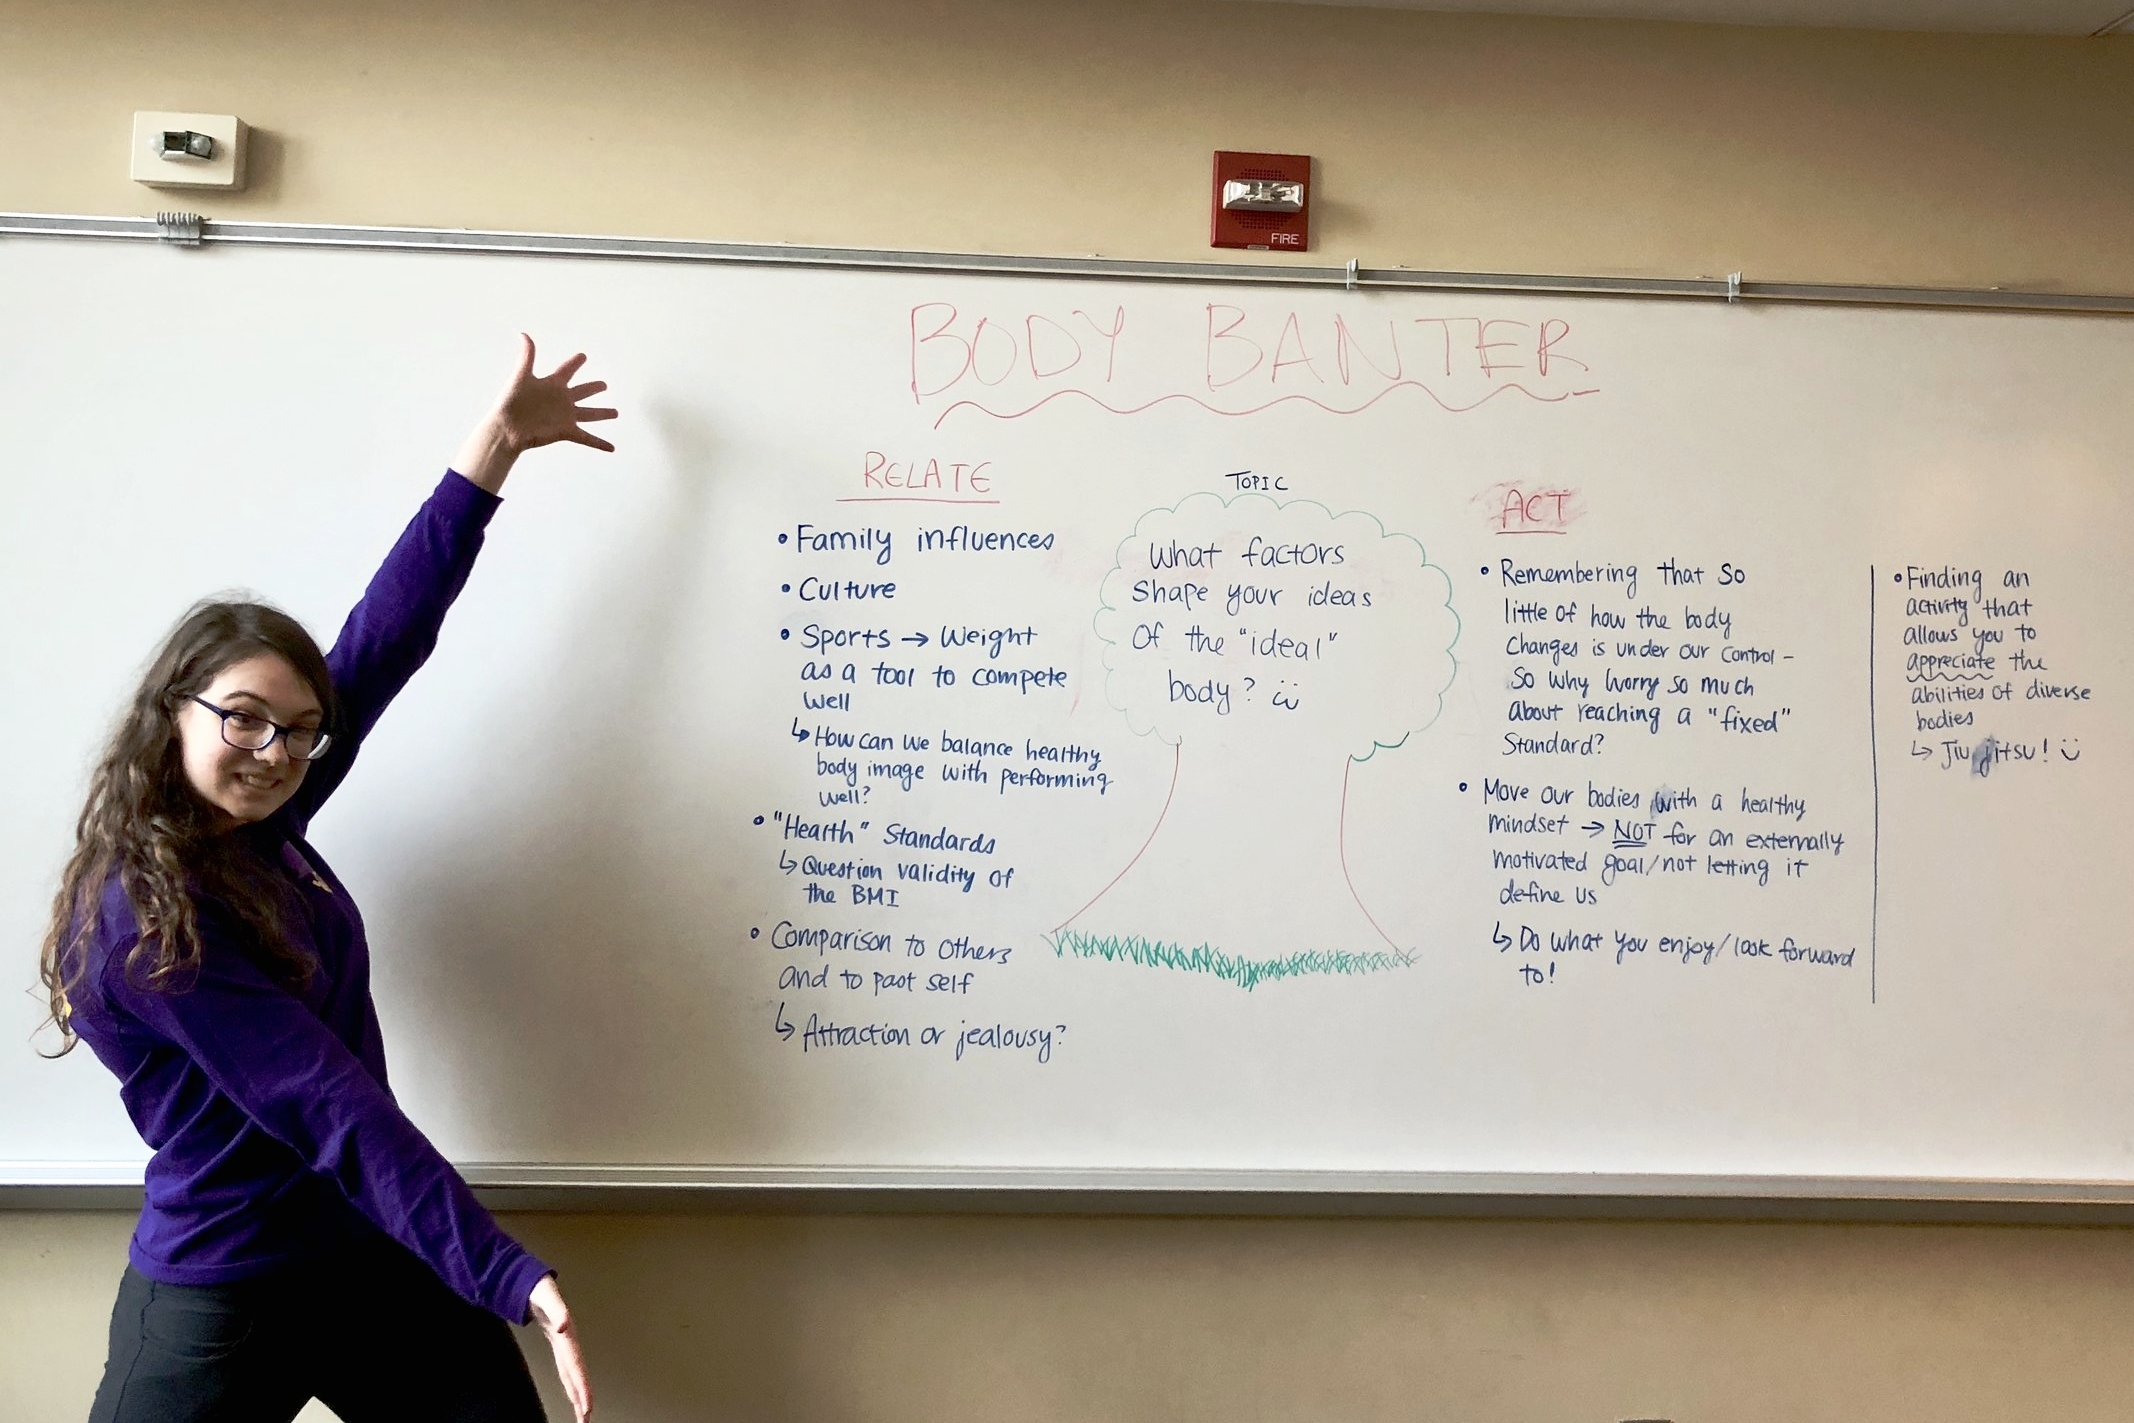 FIRE
BODY BANTER
RELATE
• Family influences
• Culture
• Sports → Weight
as a tool to compete
well
↳ How can we balance healthy
body image with performing
well?
• "Health" Standards
↳ Question validity of
the BMI
• Comparison to others
and to past self
↳ Attraction or jealousy?
TOPIC
What factors
shape your ideas
of the "ideal"
body? ü
ACT
• Remembering that so
little of how the body
changes is under our control -
So why worry so much
about reaching a "fixed"
Standard?
• Move our bodies with a healthy
mindset → NOT for an externally
motivated goal/not letting it
define us
↳ Do what you enjoy/look forward
to!
• Finding an
activity that
allows you to
appreciate the
abilities of diverse
bodies
↳ Jiu jitsu! ü